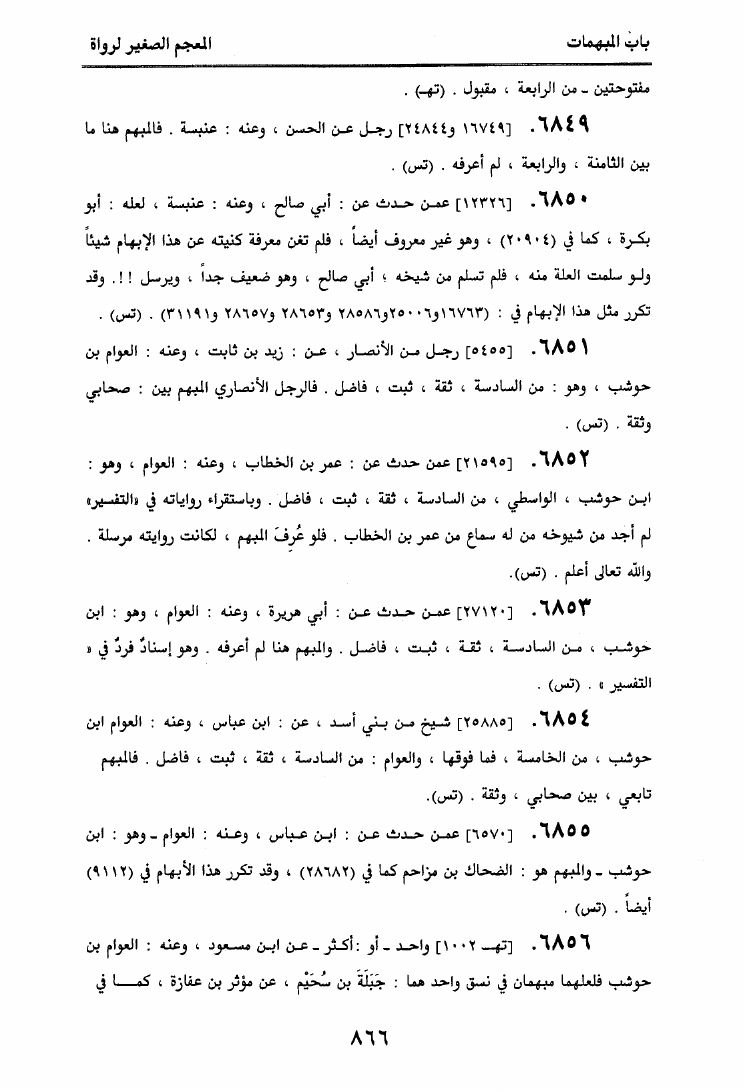 باب المبهمات
المعجم الصغير لرواة
مفتوحتين ـ من الرابعة ، مقبول . (تهـ) .
٦٨٤٩. [١٦٧٤٩ و٢٤٨٤٤] رجـل عـن الحسن ، وعنه : عنبسة . فالمبهم هنا ما
بين الثامنة ، والرابعة ، لم أعرفه . (تس) .
٦٨٥٠. [١٢٣٢٦] عمـن حـدث عن : أبي صالح ، وعنه : عنبسة ، لعله : أبو
بكـرة ، كما في (٢٠٩٠٤) ، وهو غير معروف أيضاً ، فلم تغن معرفة كنيته عن هذا الإبهام شيئاً
ولـو سلمت العلة منه ، فلم تسلم من شيخه ؛ أبي صالح ، وهو ضعيف جداً ، ويرسل !!. وقد
تكرر مثل هذا الإبهام في : (١٦٧٦٣و٢٥٠٠٦و٢٨٥٨٦ و٢٨٦٥٣ و٢٨٦٥٧ و٣١١٩١) . (تس) .
٦٨٥١. [٥٤٥٥] رجـل مـن الأنصـار ، عـن : زيد بن ثابت ، وعنه : العوام بن
حوشب ، وهو : من السادسة ، ثقة ، ثبت ، فاضل . فالرجل الأنصاري المبهم بين : صحابي
وثقة . (تس) .
٦٨٥٢. [٢١٥٩٥] عمن حدث عن : عمر بن الخطاب ، وعنه : العوام ، وهو :
ابـن حوشب ، الواسطي ، من السادسة ، ثقة ، ثبت ، فاضل . وباستقراء رواياته في «التفسير»
لم أجد من شيوخه من له سماع من عمر بن الخطاب . فلو عُرِفَ المبهم ، لكانت روايته مرسلة .
والله تعالى أعلم . (تس).
٦٨٥٣. [٢٧١٢٠] عمـن حـدث عـن : أبي هريرة ، وعنه : العوام ، وهو : ابن
حوشـب ، مـن السادسـة ، ثقـة ، ثبـت ، فاضـل . والمبهم هنا لم أعرفه . وهو إسنادٌ فردٌ في «
التفسير » . (تس) .
٦٨٥٤. [٢٥٨٨٥] شـيخ مـن بـني أسـد ، عن : ابن عباس ، وعنه : العوام ابن
حوشب ، من الخامسة ، فما فوقها ، والعوام : من السادسة ، ثقة ، ثبت ، فاضل . فالمبهم
تابعي ، بين صحابي ، وثقة . (تس).
٦٨٥٥. [٦٥٧٠] عمـن حـدث عـن : ابـن عبـاس ، وعـنه : العوام ـ وهو : ابن
حوشب ـ والمبهم هو : الضحاك بن مزاحم كما في (٢٨٦٨٢) ، وقد تكرر هذا الأبهام في (٩١١٢)
أيضـاً . (تس) .
٦٨٥٦. [تهـ ١٠٠٢] واحـد ـ أو :أكـثر ـ عـن ابـن مسـعود ، وعنه : العوام بن
حوشب فلعلهما مبهمان في نسق واحد هما : جَبَلَةَ بن سُحَيْم ، عن مؤثر بن عفازة ، كمـــا في
٨٦٦